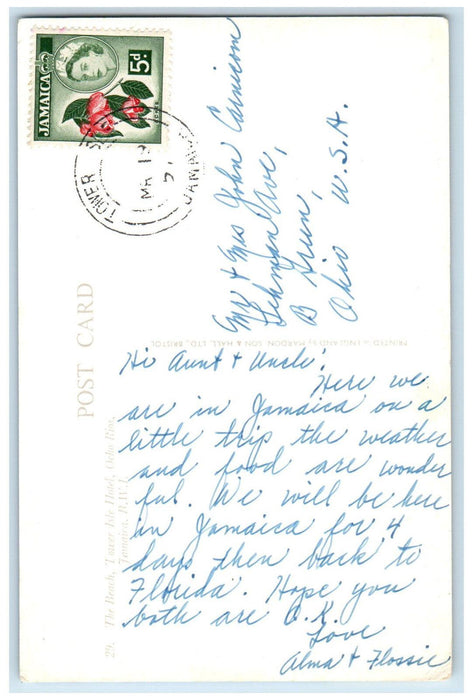 JAMAICA
5d
TOWER ISLE
MR 13
57
JAMAICA
Mr & Mrs John Carnicom
Lehman Ave,
B Green,
Ohio U.S.A.
POST CARD
PRINTED in ENGLAND by MARDON, SON & HALL, LTD., BRISTOL.
29. The Beach, Tower Isle Hotel, Ocho Rios,
Jamaica, B.W.I.
Hi Aunt & Uncle:
Here we
are in Jamaica on a
little trip the weather
and food are wonder
ful. We will be here
in Jamaica for 4
days then back to
Florida. Hope you
both are O.K.
Love
Alma & Flossie